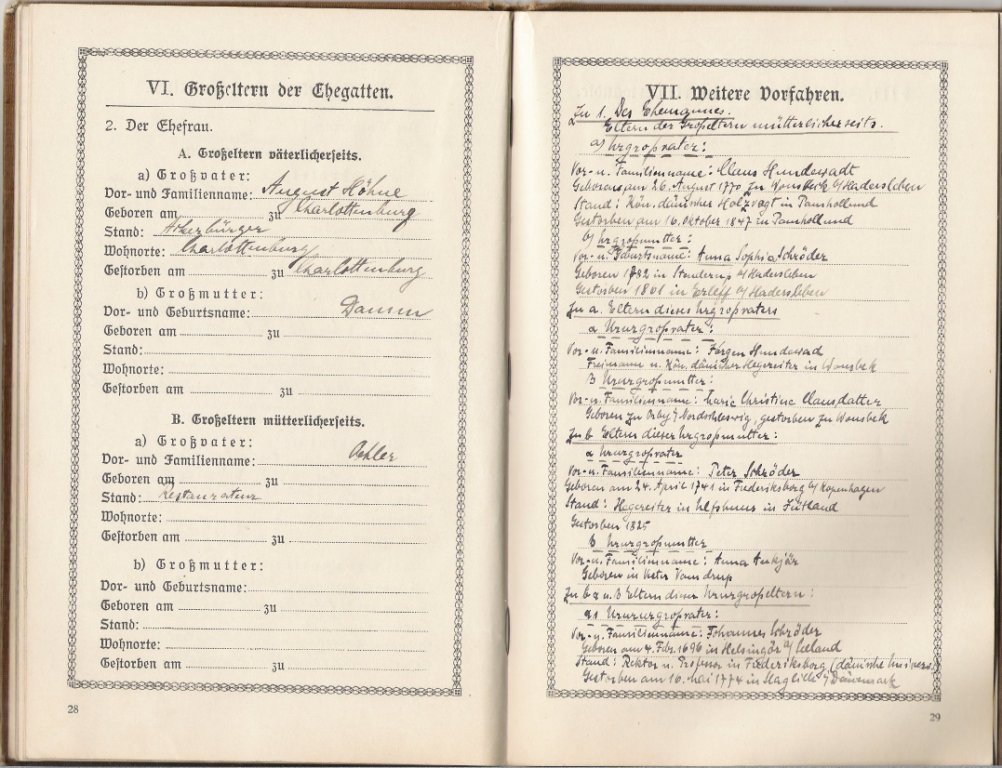 VI. Großeltern der Ehegatten.
2. Der Ehefrau.
A. Großeltern väterlicherseits.
a) Großvater:
Vor- und Familienname: August Höhne
Geboren am zu Charlottenburg
Stand: Ackerbürger
Wohnorte: Charlottenburg
Gestorben am zu Charlottenburg
b) Großmutter:
Vor- und Geburtsname:
Geboren am zu
Stand:
Wohnorte:
Gestorben am zu
B. Großeltern mütterlicherseits.
a) Großvater:
Vor- und Familienname:
Geboren am zu
Stand: Restaurateur
Wohnorte:
Gestorben am zu
b) Großmutter:
Vor- und Geburtsname:
Geboren am zu
Stand:
Wohnorte:
Gestorben am zu
28
VII. Weitere Vorfahren.
Zu 1. Des Ehemannes.
Eltern der Großeltern mütterlicherseits.
a) Urgroßvater:
Vor- u. Familienname: Claus Hundewadt
Geboren am 26. August 1770 zu Wonsbek b/Hadersleben
Stand: Kön. dänischer Holzvogt in
Gestorben am 16. Oktober 1847 in
b) Urgroßmutter:
Vor- u. Geburtsname: Anna Sophia Schröder
Geboren 1782 in Standerup b/Hadersleben
Gestorben 1861 in Erleff b/Hadersleben
Zu a. Eltern dieses Urgroßvaters
α Ururgroßvater:
Vor- u. Familienname: Jörgen Hundewad
Freimann u. Kön. dänischer Hegereiter in Wonsbek
β Ururgroßmutter:
Vor- u. Familienname: Marie Christine Clausdatter
Geboren zu Örby i/Nordschleswig, gestorben zu Wonsbek
Zu b Eltern dieser Urgroßmutter:
α Ururgroßvater
Vor- u. Familienname: Peter Schröder
Geboren am 24. April 1741 in Frederiksborg b/Kopenhagen
Stand: Hegereiter in in Jütland
Gestorben 1825
β Ururgroßmutter
Vor- u. Familienname: Anna
Geboren in Vester Vamdrup
Zu b α u. β Eltern dieser Ururgroßeltern:
α1 Urururgroßvater:
Vor- u. Familienname: Johannes Schröder
Geboren am 4. Febr. 1696 in Helsingör a/Seeland
Stand: Rektor u. Professor in Frederiksborg (dänische Univers.
Gestorben am 16. Mai 1774 in Slaglille i/Dänemark
29